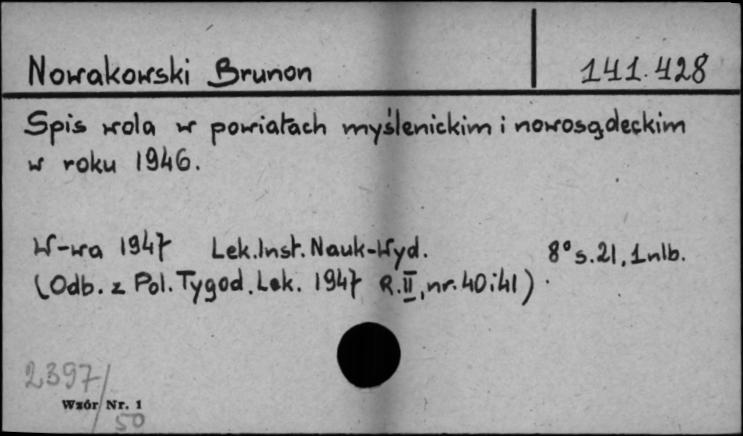 Nowakowski Brunon 141.428
Spis wola w powiatach myślenickim i nowosądeckim
w roku 1946.
W-wa 1947 Lek.Inst.Nauk-Wyd. 8° s.21, 1nlb.
(Odb. z Pol.Tygod.Lek. 1947 R.II, nr.40i41).
2397/
Wzór Nr. 1
50